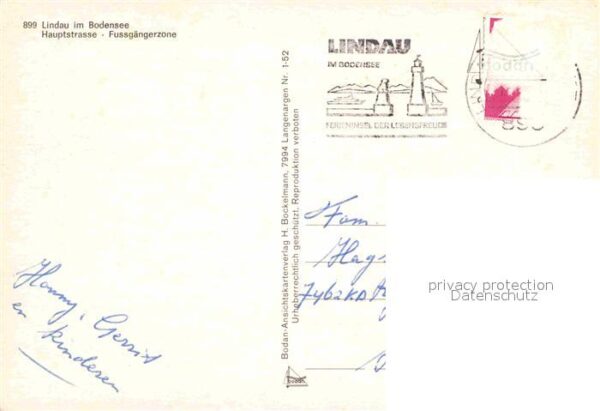 899 Lindau im Bodensee
Hauptstrasse · Fussgängerzone
LINDAU
IM BODENSEE
FERIENINSEL DER LEBENSFREUDE
Bodan-Ansichtskartenverlag H. Bockelmann, 7994 Langenargen Nr. 1-52
Urheberrechtlich geschützt. Reproduktion verboten
Fam.
Hag
7462KD
privacy protection
Datenschutz
Hanny, Gerrit
en kinderen
bodan